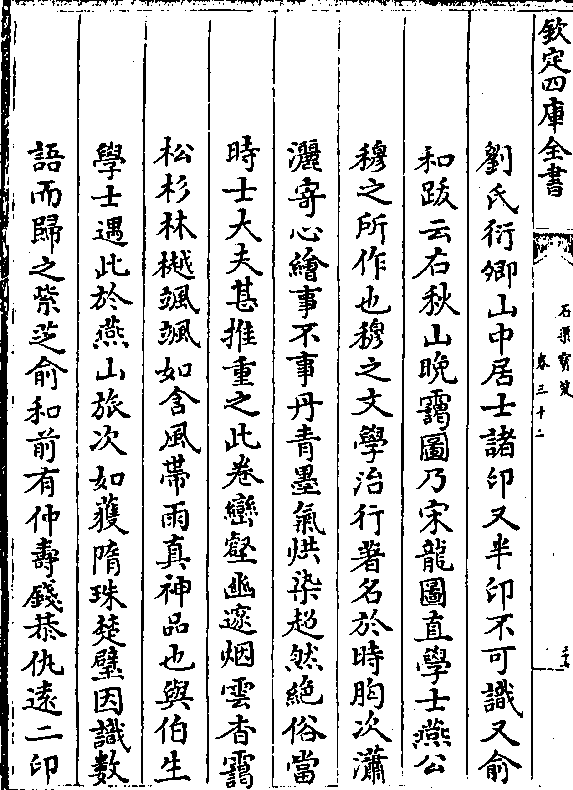 欽定四庫全書
石渠寶笈
卷三十二
劉氏衍卿山中居士諸印又半印不可識又俞
和跋云右秋山晚靄圖乃宋龍圖直學士燕公
穆之所作也穆之文學治行著名於時胸次瀟
灑寄心繪事不事丹青墨氣烘染超然絶俗當
時士大夫甚推重之此卷巒壑幽邃烟雲杳靄
松杉林樾颯颯如含風帶雨真神品也與伯生
學士遇此於燕山旅次如獲隋珠楚璧因識數
語而歸之紫芝俞和前有仲壽錢恭仇遠二印